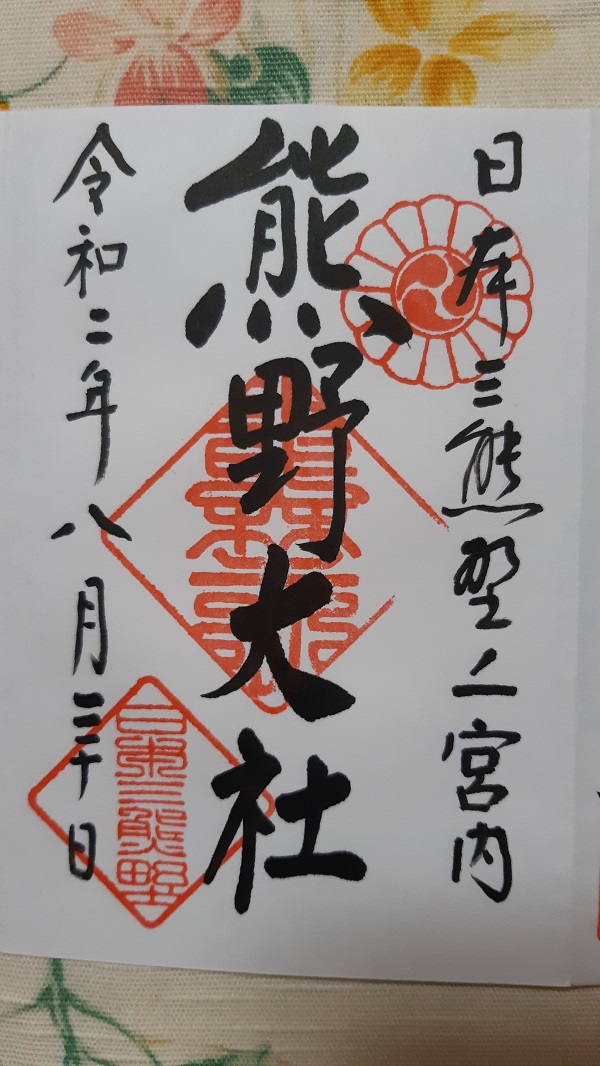 日本三熊野ノ一宮内
熊野大社
令和二年八月三十日
日本三熊野